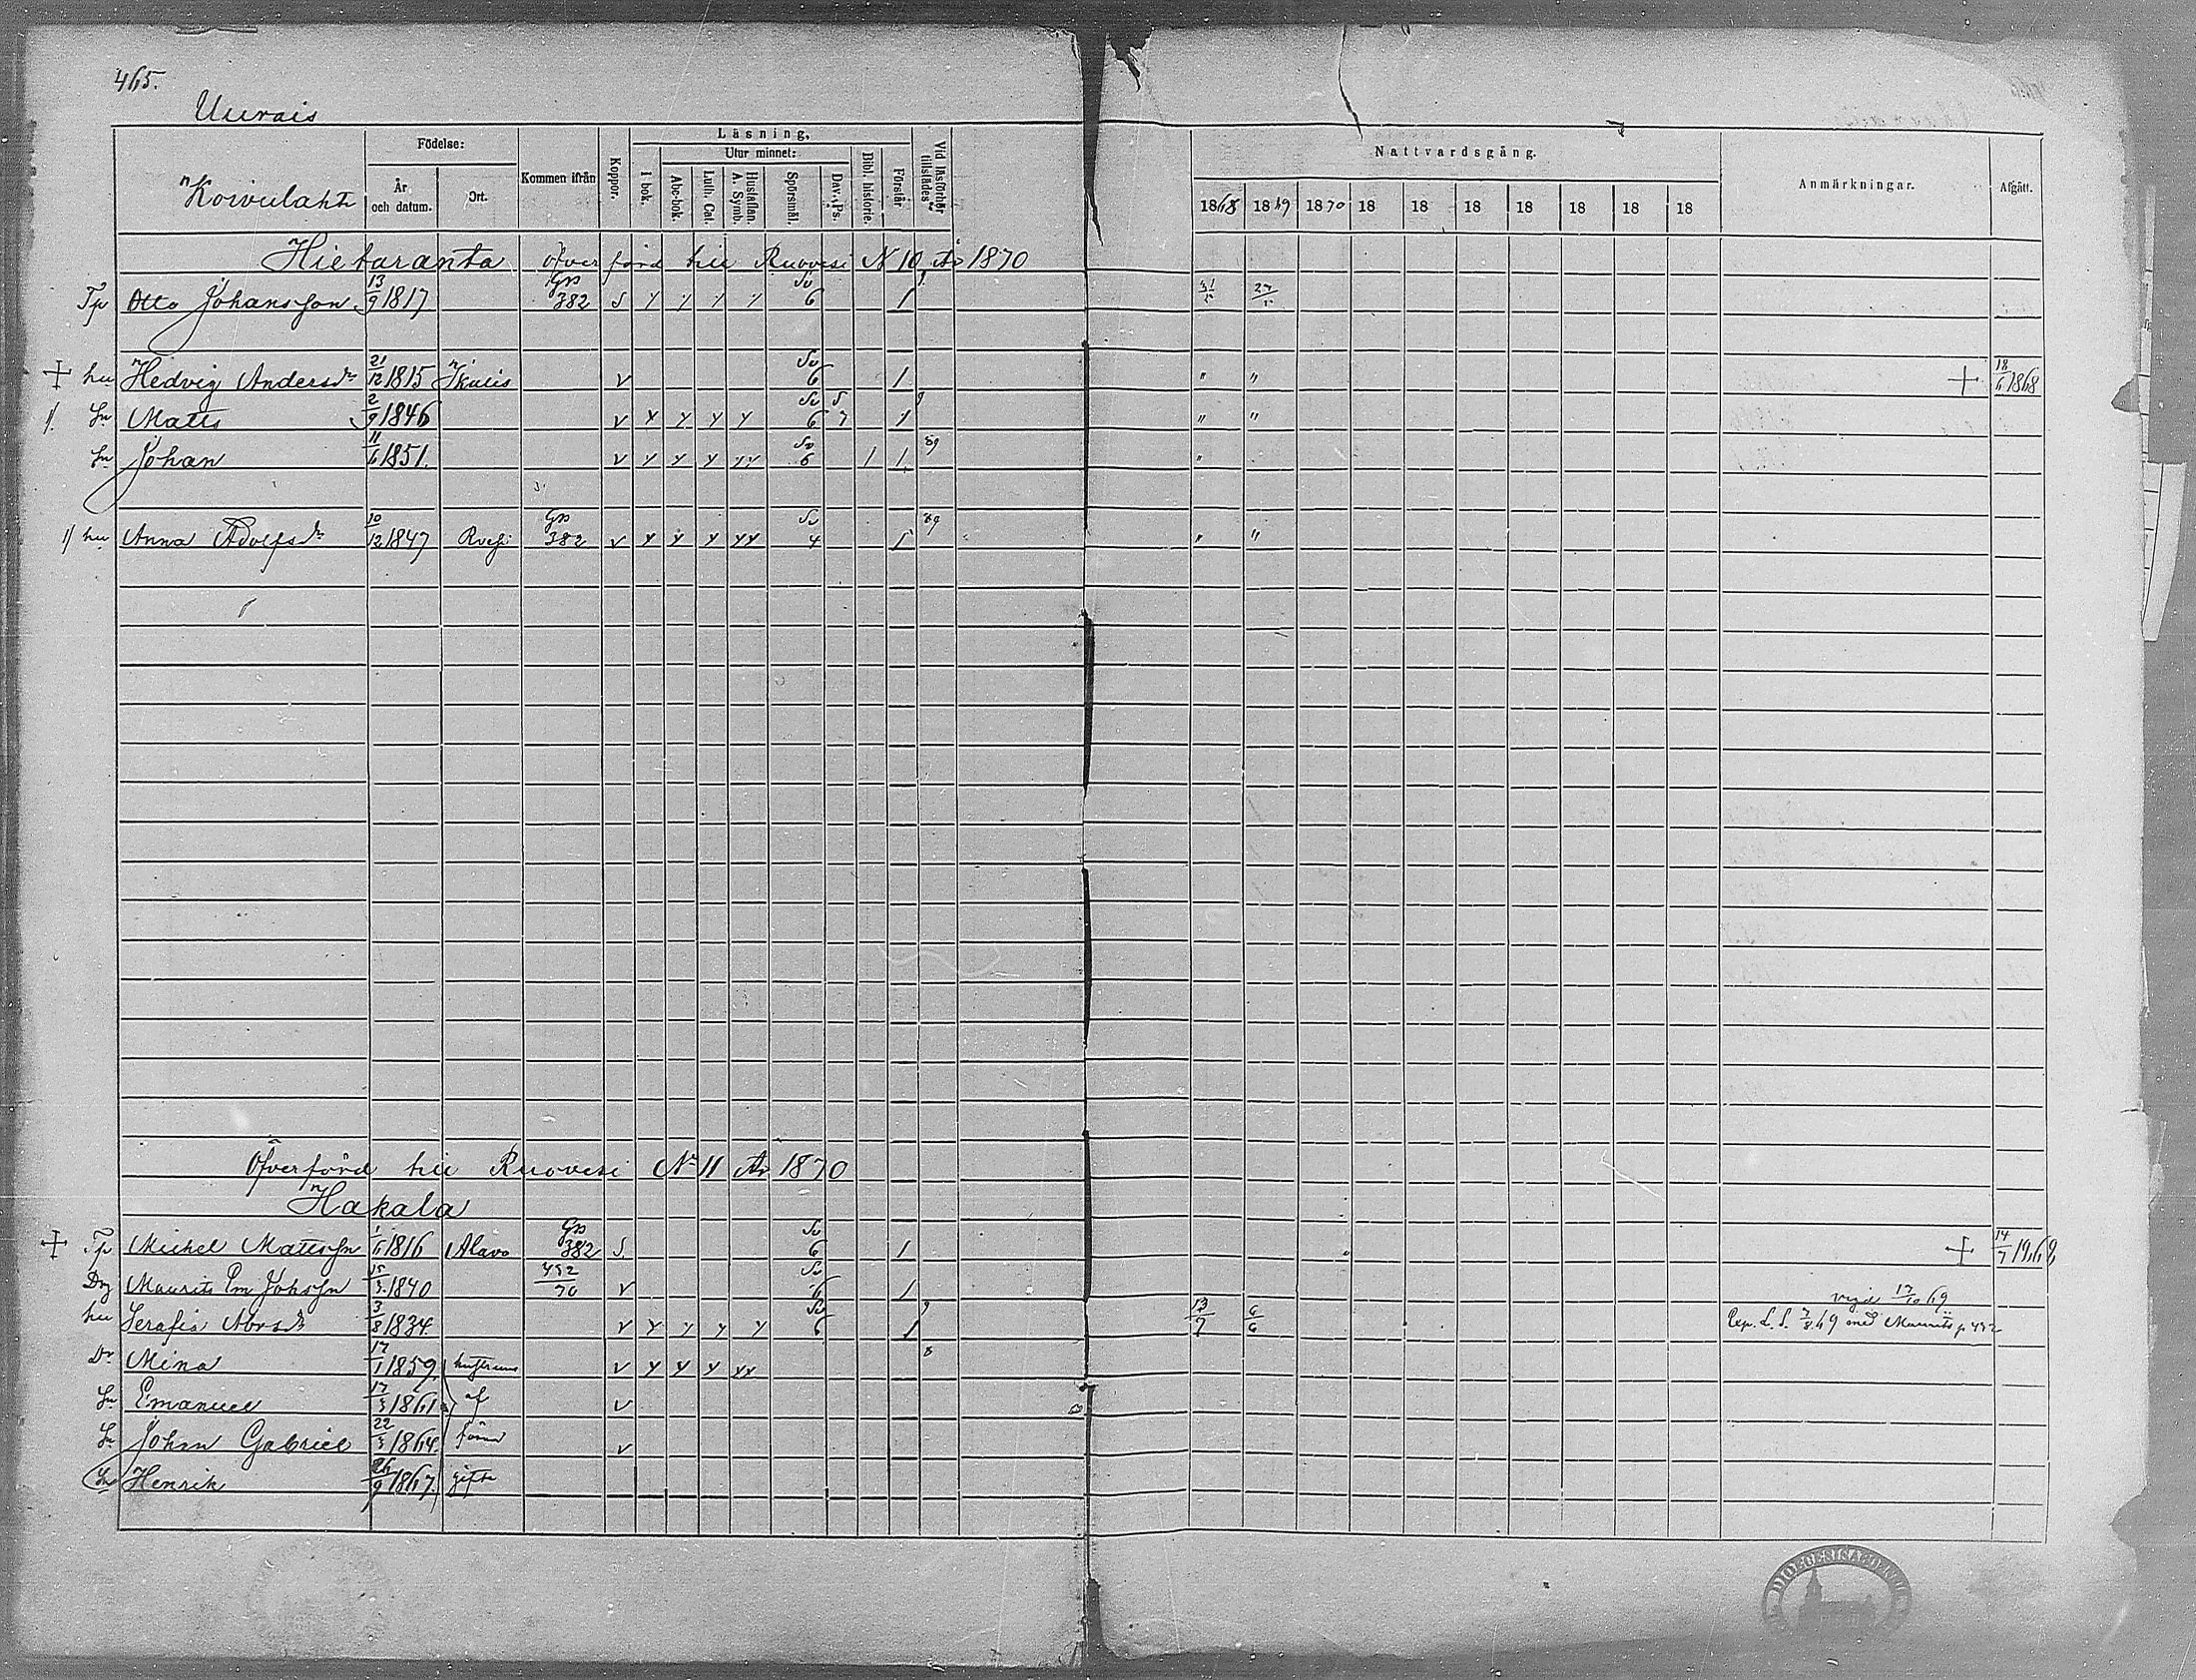 465.
Uurais
Koivulaht
Födelse:
År och datum.
Ort.
Kommen ifrån
Koppor.
Läsning.
I bok.
Utur minnet:
Abc-bok.
Luth. Cat.
Hustaflan. A. Symb.
Spörsmål.
Dav. Ps.
Bibl. historie.
Förstår
Vid läsförhör tillstädes
Nattvardsgång.
1868 1869 1870 18 18 18 18 18 18 18
Anmärkningar.
Afgått.
Hietaranta öfverförd till Ruovesi N 10 År 1870
Tp Otto Johansson 13/9 1817 Gp 382 S Sv 6 1 31/5 27/5
+ hu Hedvig Andersdr 21/12 1815 Ikalis v Sv 6 1 " " + 18/6 1868
Sn Matts 2/9 1846 v y y y y Sv 6 7 1 " "
Sn Johan 11/6 1851. v y y y yy Sv 6 1 1 89 "
hu Anna Adolfsdr 10/12 1847 Rvesi Gp 382 v y y y yy Sv 4 1 89 " "
Öfverförd till Ruovesi No 11 År 1870
Hakala
+ Tp Michel Mattsson 1/6 1816 Alavo Gp 382 S. Sv 6 1 + 14/7 1868
Drg Maurits Em Johsson 15/3 1840 452/70 v Sv 6 1 vigd 17/10 69
hu Serafia Abrsdr 3/8 1834. v y y y y Sv 6 1 9 13/7 6/6 Exp. L. S. 7/8 69 med Maurits p 452
Dr Mina 17/1 1859. hustruns v y y y yy 8
Sn Emanuel 17/3 1861 af v
Sn Johan Gabriel 22/3 1864. förra v
Sn Henrik 26/9 1867. gifte